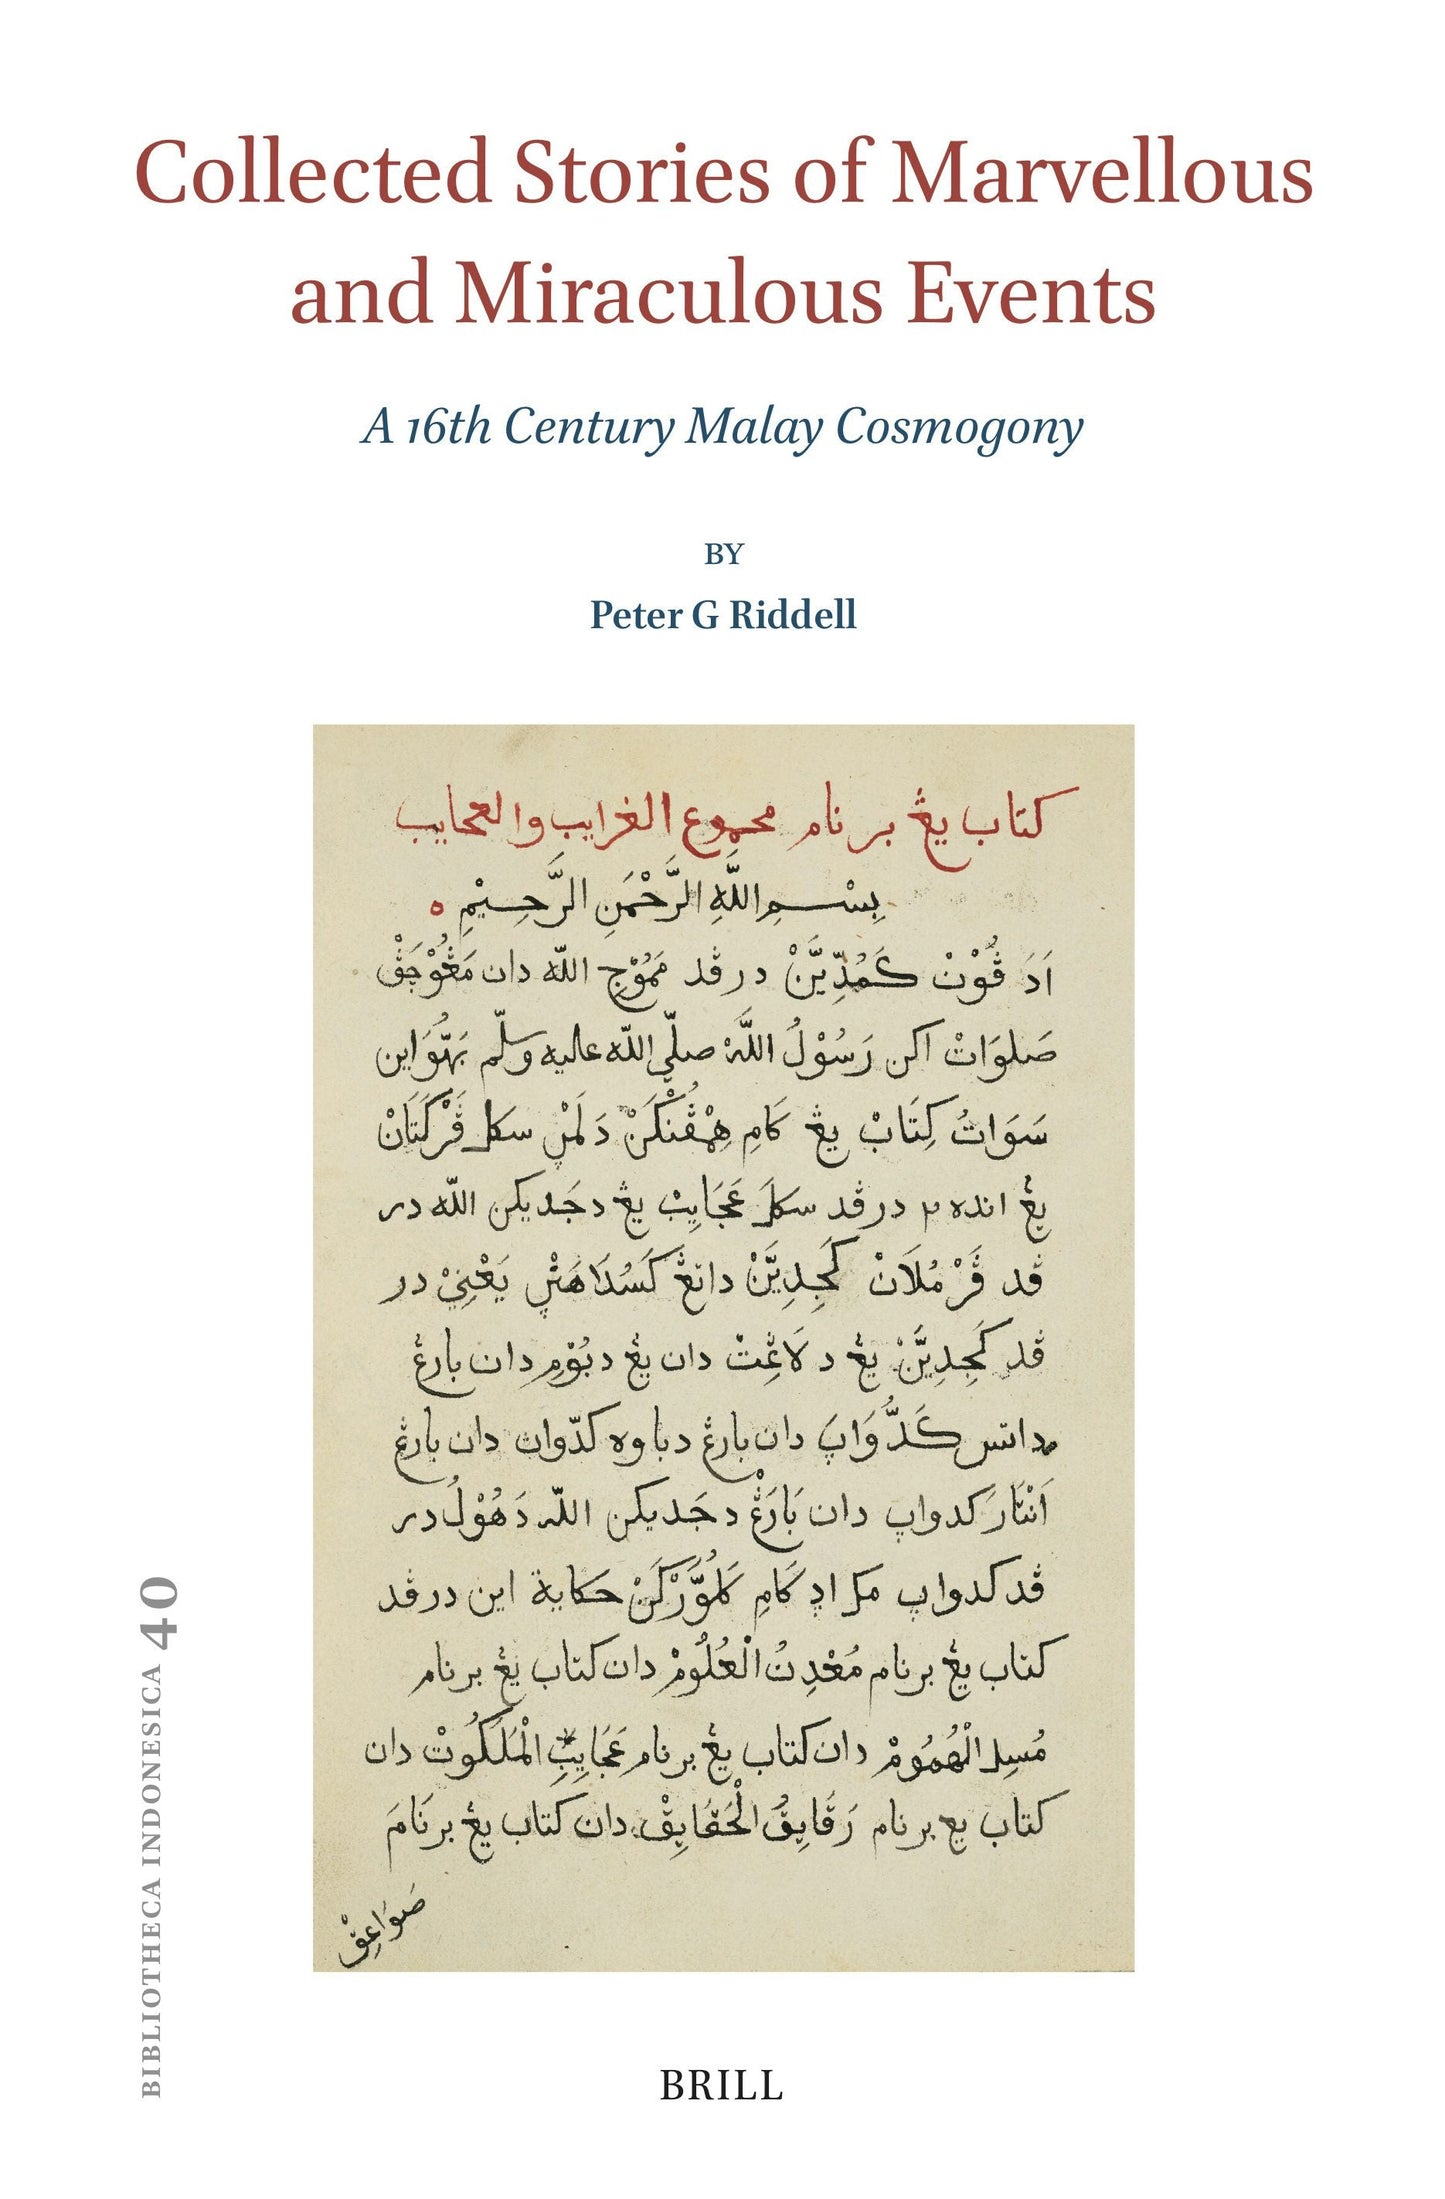 Collected Stories of Marvellous
and Miraculous Events
A 16th Century Malay Cosmogony
BY
Peter G Riddell
كتاب يڠ برنام مجموع الغرايب والعجايب
بِسْــمِ اللَّهِ الرَّحْمَنِ الرَّحِيْمِ ه
اَدَ ڤُوْنْ كَمُدِّيَّنْ درڤد مَمُوْجِ اللّه دان مَڠُوْجَڤْ
صَلوَاتْ اكن رَسُوْلُ اللَّهْ صلّي اللّه عليه وسلّم بَهُّوَاين
سَوَاتُ كِتَابْ يڠ كَامِ هِمْڤُنْكَنْ دَلَمْڽ سكل ڤَرْكَتَانْ
يڠ انده ٢ درڤد سكلَ عَجَايِبْ يڠ دجَديكن اللّه در
ڤد ڤَرْمُلَانْ كَجِدِيَّنْ داتڠ كَسُدَاهَنْڽ يَعْنِيْ در
ڤد كَجِدِيَّنْ يڠ د لَاڠِتْ دان يڠ دبُوْمِ دان بارڠ
داتس كَدُّوَاڽَ دان بارڠ دباوه كدّوان دان بارڠ
اَنْتَارَ كدواڽ دان بَارَڠْ دجَديكن اللّه دَهُوْلُ در
ڤد كدواڽ مك اد كَامِ كَلُوَّرْكَنْ حكاية اين درڤد
كتاب يڠ برنام مُعْدِنُ الْعُلُوْمْ دان كتاب يڠ برنام
مُسِل الْهُمُوْمْ دان كتاب يڠ برنام عَجَايِبِ الْمَلَكُوتْ دان
كتاب يڠ برنام رَقَايِقُ الْحَقَايِقْ دان كتاب يڠ برنَامَ
صَوَاعِقْ
BIBLIOTHECA INDONESICA 40
BRILL